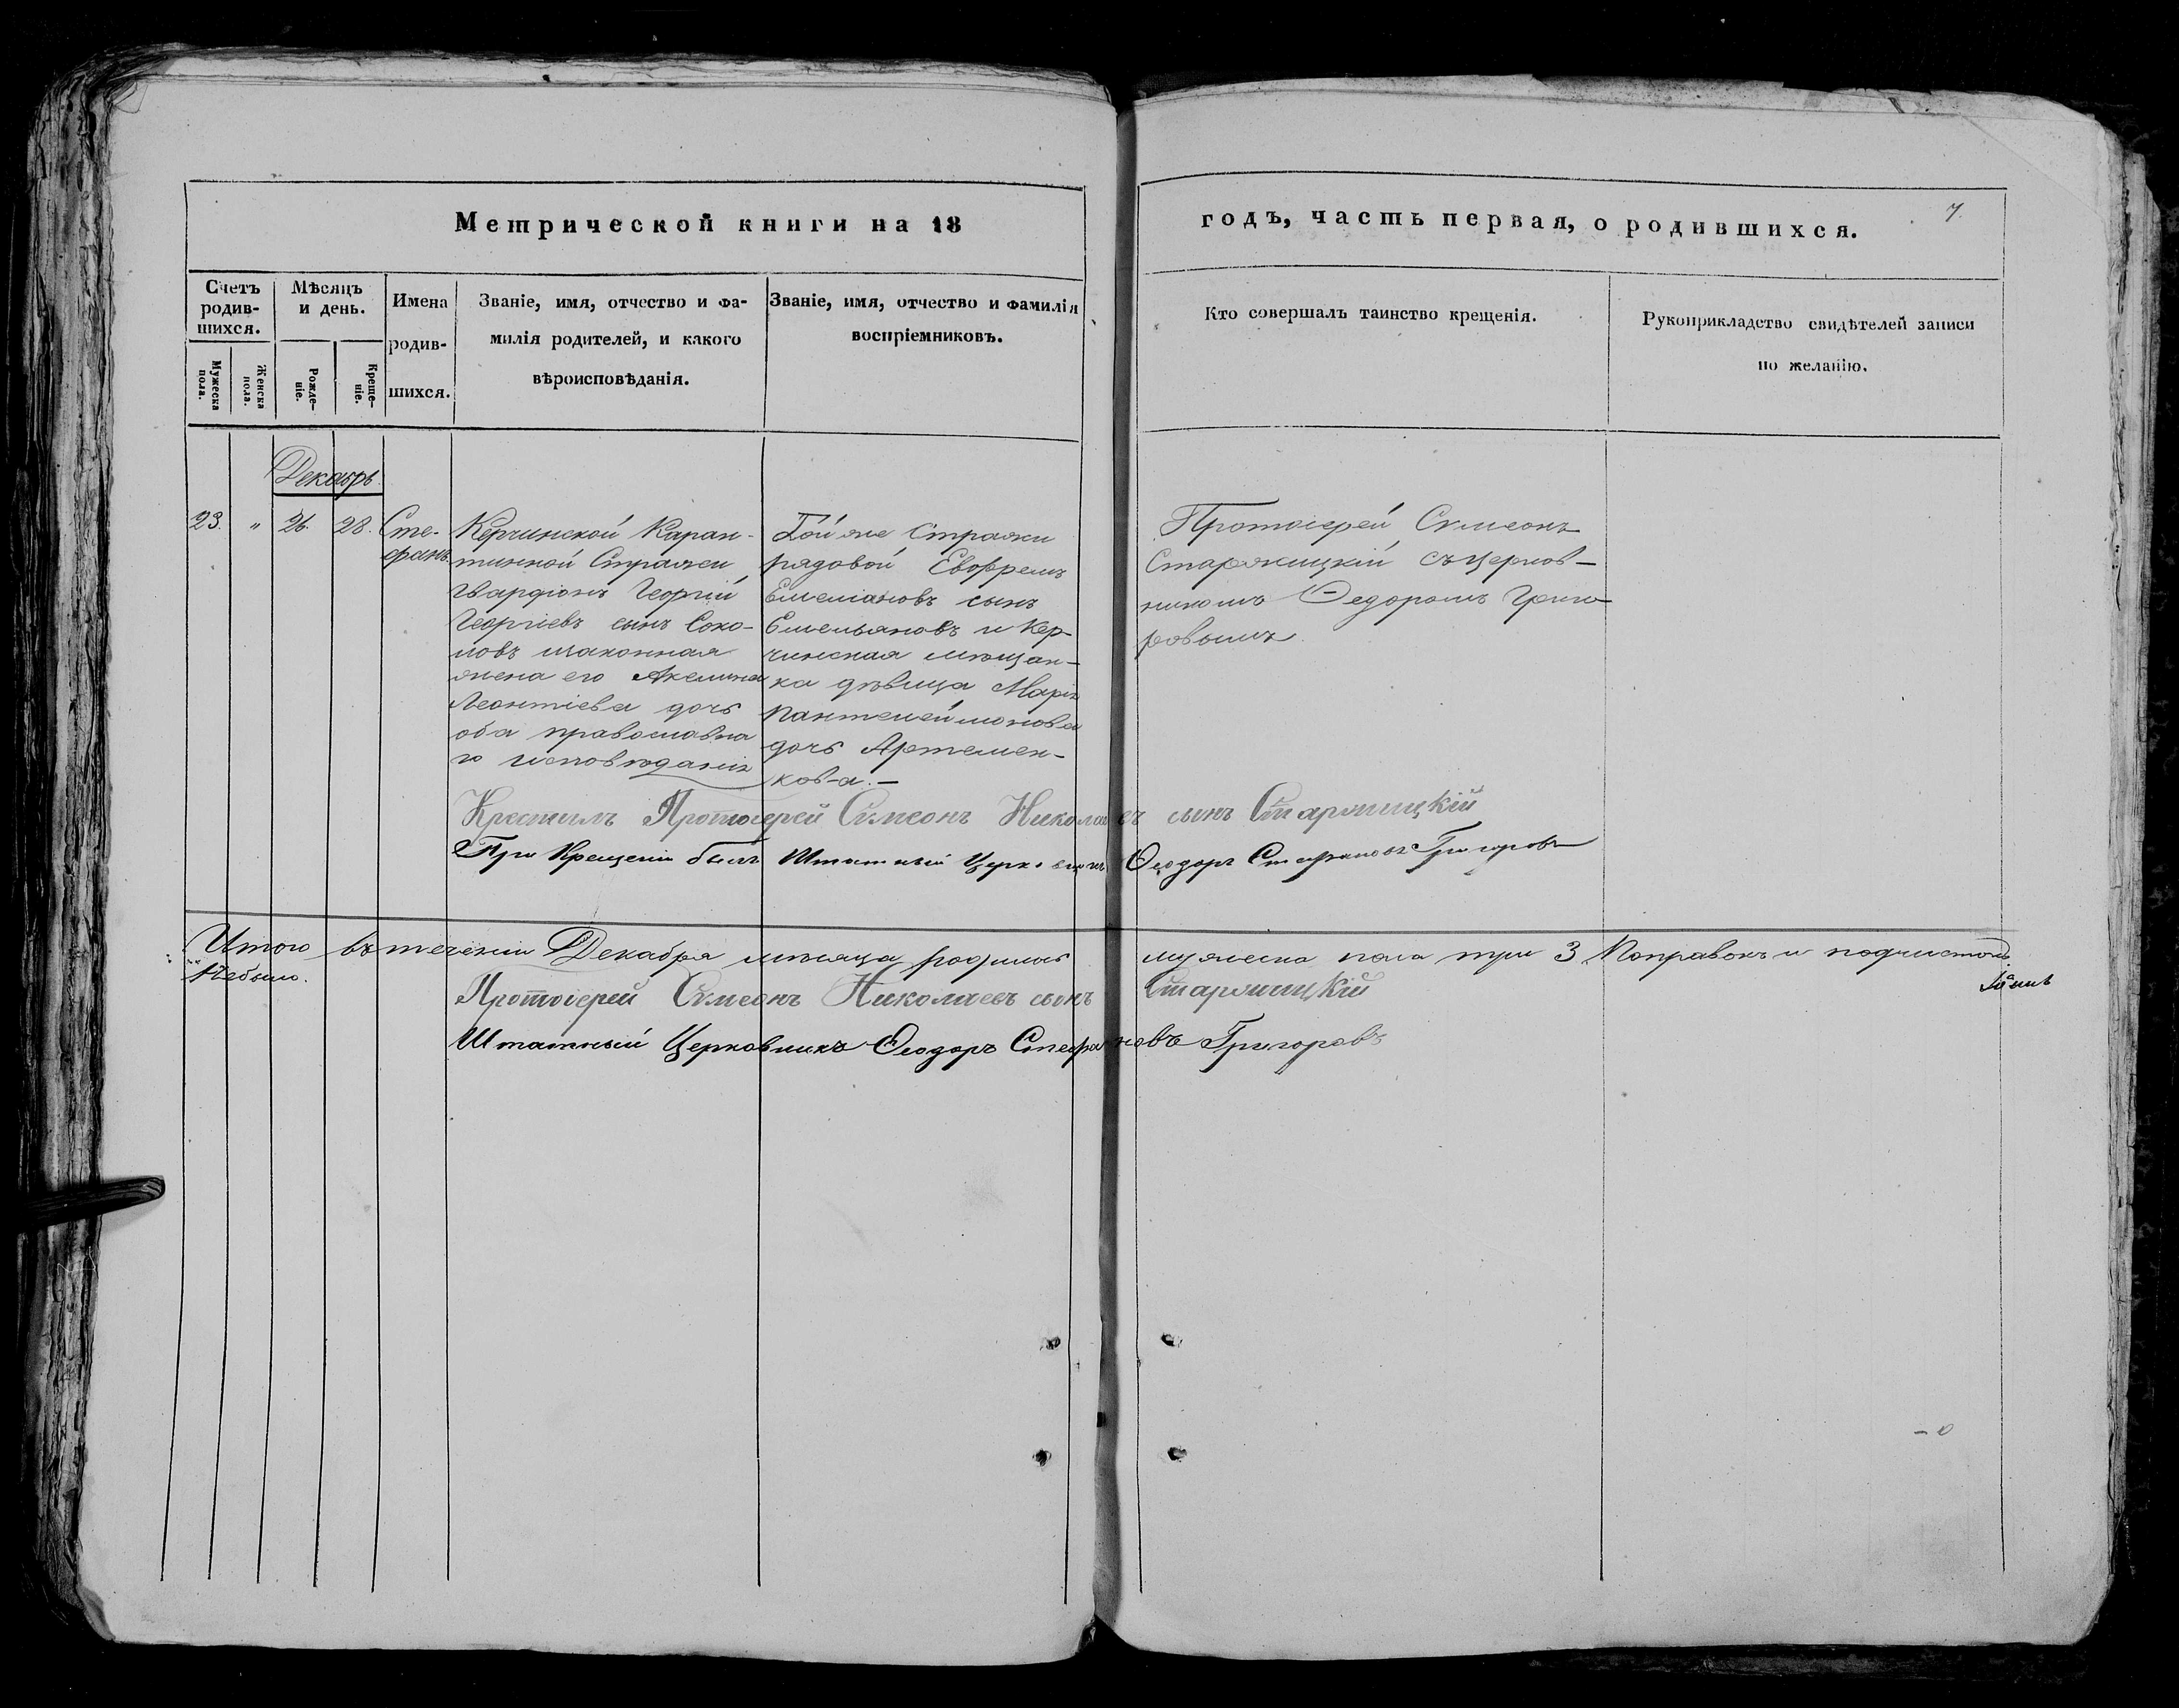 Метрической книги на 18
годъ, часть первая, о родившихся.
7.
Счетъ родив-шихся.
Мужеска пола.
Женска пола.
Мѣсяцъ и день.
Рожде-ніе.
Креще-ніе.
Имена
родив-
шихся.
Званіе, имя, отчество и фа-
милія родителей, и какого
вѣроисповѣданія.
Званіе, имя, отчество и фамилія
воспріемниковъ.
Кто совершалъ таинство крещенія.
Рукоприкладство свидѣтелей записи
по желанію.
Декабрь
23. " 26. 28.
Сте-
фанъ
Керчинской Каран-
тинной Стражи
Гвардіонъ Георгій
Георгіевъ сынъ Соко-
ловъ изаконная
жена его Акелина
Леонтіева дочь
оба православна
го исповѣданія
Той же Стражи
рядовой Евфремъ
Емеліановъ сынъ
Емельяновъ и Кер-
чинская мѣщан-
ка дѣвица Марія
Пантелеймонова
дочь Артемен-
кова.—
Протоіерей Сѵмеонъ
Старжицкій съ церков-
никомъ Ѳедоромъ Григо
ровымъ
Крестилъ Протоіерей Сѵмеонъ Николаевъ сынъ Старжицкій
При Крещеніи былъ Штатный Церковникъ Ѳеодоръ Стефановъ Григоровъ
Итого въ теченіи Декабря мѣсяца родилось мужеска пола три 3 Поправокъ и подчистокъ
Небыло.
Протоіерей Сѵмеонъ Николаевъ сынъ Старжицкій
Штатный Церковникъ Ѳеодоръ Стефановъ Григоровъ